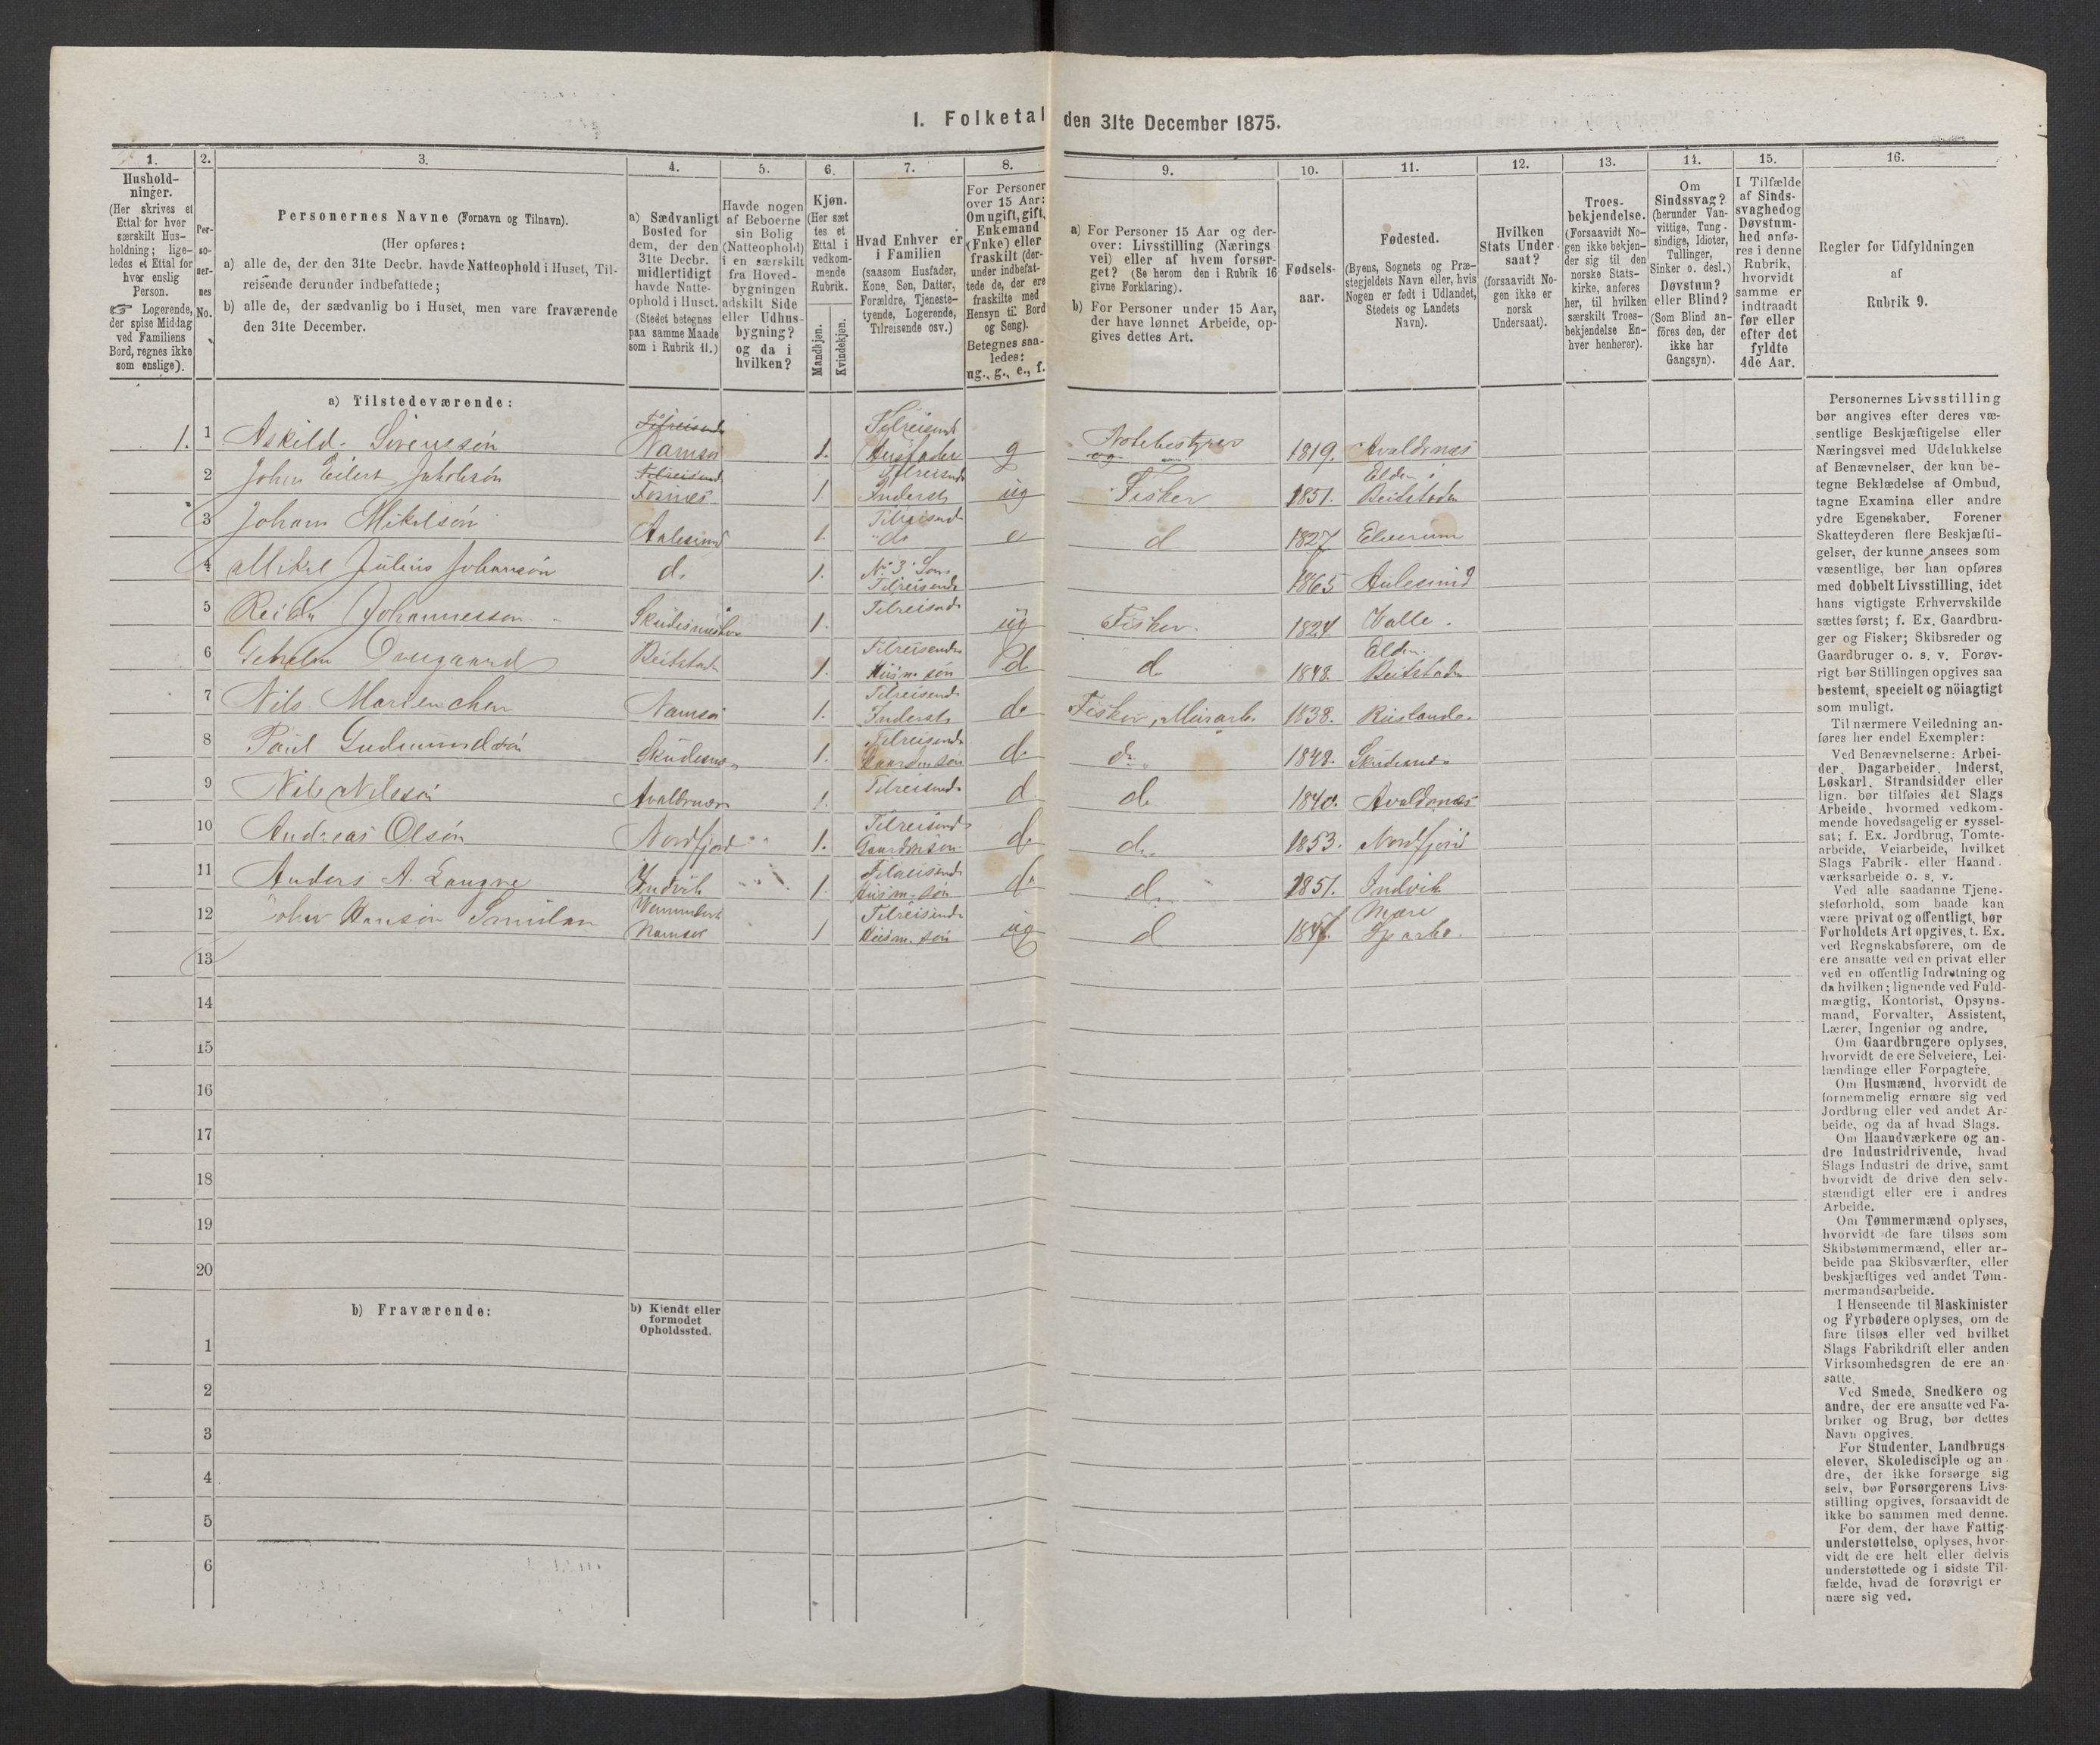 I. Folketal den 31te December 1875.
1. 2. 3. 4. 5. 6. 7. 8. 9. 10. 11. 12. 13. 14. 15. 16.
Hushold-
ninger.
(Her skrives et
Ettal for hver
særskilt Hus-
holdning; lige-
ledes et Ettal for
hver enslig
Person.
☞ Logerende,
der spise Middag
ved Familiens
Bord, regnes ikke
som enslige).
Per-
so-
ner-
nes
No.
Personernes Navne (Fornavn og Tilnavn).
(Her opføres:
a) alle de, der den 31te Decbr. havde Natteophold i Huset, Til-
reisende derunder indbefattede;
b) alle de, der sædvanlig bo i Huset, men vare fraværende
den 31te December.
a) Sædvanligt
Bosted for
dem, der den
31te Decbr.
midlertidigt
havde Natte-
ophold i Huset.
(Stedet betegnes
paa samme Maade
som i Rubrik 11.)
Havde nogen
af Beboerne
sin Bolig
(Natteophold)
i en særskilt
fra Hoved-
bygningen
adskilt Side
eller Udhus-
bygning?
og da i
hvilken?
Kjøn.
(Her sæt
tes et
Ettal i
vedkom-
mende
Rubrik.
Mandkjøn.
Kvindekjøn.
Hvad Enhver er
i Familien
(saasom Husfader,
Kone, Søn, Datter,
Forældre, Tjeneste-
tyende, Logerende,
Tilreisende osv.)
For Personer
over 15 Aar:
Om ugift, gift,
Enkemand
(Enke) eller
fraskilt (der-
under indbefat-
tede de, der ere
fraskilte med
Hensyn til Bord
og Seng).
Betegnes saa-
ledes:
ug., g., e., f.
a) For Personer 15 Aar og der-
over: Livsstilling (Nærings
vei) eller af hvem forsør-
get? (Se herom den i Rubrik 16
givne Forklaring).
b) For Personer under 15 Aar,
der have lønnet Arbeide, op-
gives dettes Art.
Fødsels-
aar.
Fødested.
(Byens, Sognets og Præ-
stegjeldets Navn eller, hvis
Nogen er født i Udlandet,
Stedets og Landets
Navn).
Hvilken
Stats Under-
saat?
(forsaavidt No-
gen ikke er
norsk
Undersaat).
Troes-
bekjendelse.
(Forsaavidt No-
gen ikke bekjen-
der sig til den
norske Stats-
kirke, anføres
her, til hvilken
særskilt Troes-
bekjendelse En-
hver henhører).
Om
Sindssvag?
(herunder Van-
vittige, Tung-
sindige, Idioter,
Tullinger,
Sinker o. desl.)
Døvstum?
eller Blind?
(Som Blind an-
føres den, der
ikke har
Gangsyn).
I Tilfælde
af Sinds-
svaghed og
Døvstum-
hed anfø-
res i denne
Rubrik,
hvorvidt
samme er
indtraadt
før eller
efter det
fyldte
4de Aar.
Regler for Udfyldningen
af
Rubrik 9.
a) Tilstedeværende:
1. 1 Askild Sørensøn Tilreisende Namsos 1. Tilreisend Husfader g Notebestyrer og 1819. Avaldsnæs
2 Johan Eilert Jakobsøn Tilreisende 1. Tilreisend Inderst ug Fisker 1851. Elden i Beitstaden
3 Johan Mikelsøn Aalesund 1. Tilreisend do e d 1827 Elverum
4 Mikel Julius Johansøn do 1. No 3 Søn Tilreisende 1865 Aalesund
5 Johannesson 1. Tilreisende ug Fisker. 1824. Valle.
6 Overgaard Beitstad 1. Tilreisende Husm. søn do d 1848. Elden Beitstaden
7 Nils Namsos 1. Tilreisende Inderst do Fisker, Murarb. 1838. Rusland
8 Paul Gudmundsøn Skudesnæs 1. Tilreisende Gaardm. søn do do 1848. Skudesnæs
9 Nils Nilssøn Avaldsnæs 1. Tilreisende d do 1840. Avaldsnæs
10 Andreas Olsøn Nordfjord 1. Tilreisende Gaardm. søn do do 1853. Nordfjord
11 Anders A. Indvik 1. Tilreisende Husm. søn do do 1851. Indvik
12 Johan Hansøn Namsos 1 Tilreisende Husm. søn ug d Mære Sparbo.
13
14
15
16
17
18
19
20
b) Fraværende:
b) Kjendt eller
formodet
Opholdssted.
1
2
3
4
5
6
Personernes Livsstilling
bør angives efter deres væ-
sentlige Beskjæftigelse eller
Næringsvei med Udelukkelse
af Benævnelser, der kun be-
tegne Beklædelse af Ombud,
tagne Examina eller andre
ydre Egenskaber. Forener
Skatteyderen flere Beskjæfti-
gelser, der kunne ansees som
væsentlige, bør han opføres
med dobbelt Livsstilling, idet
hans vigtigste Erhvervskilde
sættes først; f. Ex. Gaardbru-
ger og Fisker; Skibsreder og
Gaardbruger o. s. v. Forøv-
rigt bør Stillingen opgives saa
bestemt, specielt og nöiagtigt
som muligt.
Til nærmere Veiledning an-
føres her endel Exempler:
Ved Benævnelserne: Arbei-
der, Dagarbeider, Inderst,
Løskarl, Strandsidder eller
lign. bør tilføies det Slags
Arbeide, hvormed vedkom-
mende hovedsagelig er syssel-
sat; f. Ex. Jordbrug, Tomte-
arbeide, Veiarbeide, hvilket
Slags Fabrik- eller Haand-
værksarbeide o. s. v.
Ved alle saadanne Tjene-
steforhold, som baade kan
være privat og offentligt, bør
Forholdets Art opgives, t. Ex.
ved Regnskabsførere, om de
ere ansatte ved en privat eller
ved en offentlig Indretning og
da hvilken; lignende ved Fuld-
mægtig, Kontorist, Opsyns-
mand, Forvalter, Assistent,
Lærer, Ingeniør og andre.
Om Gaardbrugere oplyses,
hvorvidt de ere Selveiere, Lei-
lændinge eller Forpagtere.
Om Husmænd, hvorvidt de
fornemmelig ernære sig ved
Jordbrug eller ved andet Ar-
beide, og da af hvad Slags.
Om Haandværkere og an-
dre Industridrivende, hvad
Slags Industri de drive, samt
hvorvidt de drive den selv-
stændigt eller ere i andres
Arbeide.
Om Tømmermænd oplyses,
hvorvidt de fare tilsøs som
Skibstømmermænd, eller ar-
beide paa Skibsværfter, eller
beskjæftiges ved andet Tøm-
mermandsarbeide.
I Henseende til Maskinister
og Fyrbødere oplyses, om de
fare tilsøs eller ved hvilket
Slags Fabrikdrift eller anden
Virksomhedsgren de ere an-
satte.
Ved Smede, Snedkere og
andre, der ere ansatte ved Fa-
briker og Brug, bør dettes
Navn opgives.
For Studenter, Landbrugs-
elever, Skoledisciple og an-
dre, der ikke forsørge sig
selv, bør Forsørgerens Livs-
stilling opgives, forsaavidt de
ikke bo sammen med denne.
For dem, der have Fattig-
understøttelse, oplyses, hvor-
vidt de ere helt eller delvis
understøttede og i sidste Til-
fælde, hvad de forøvrigt er
nære sig ved.